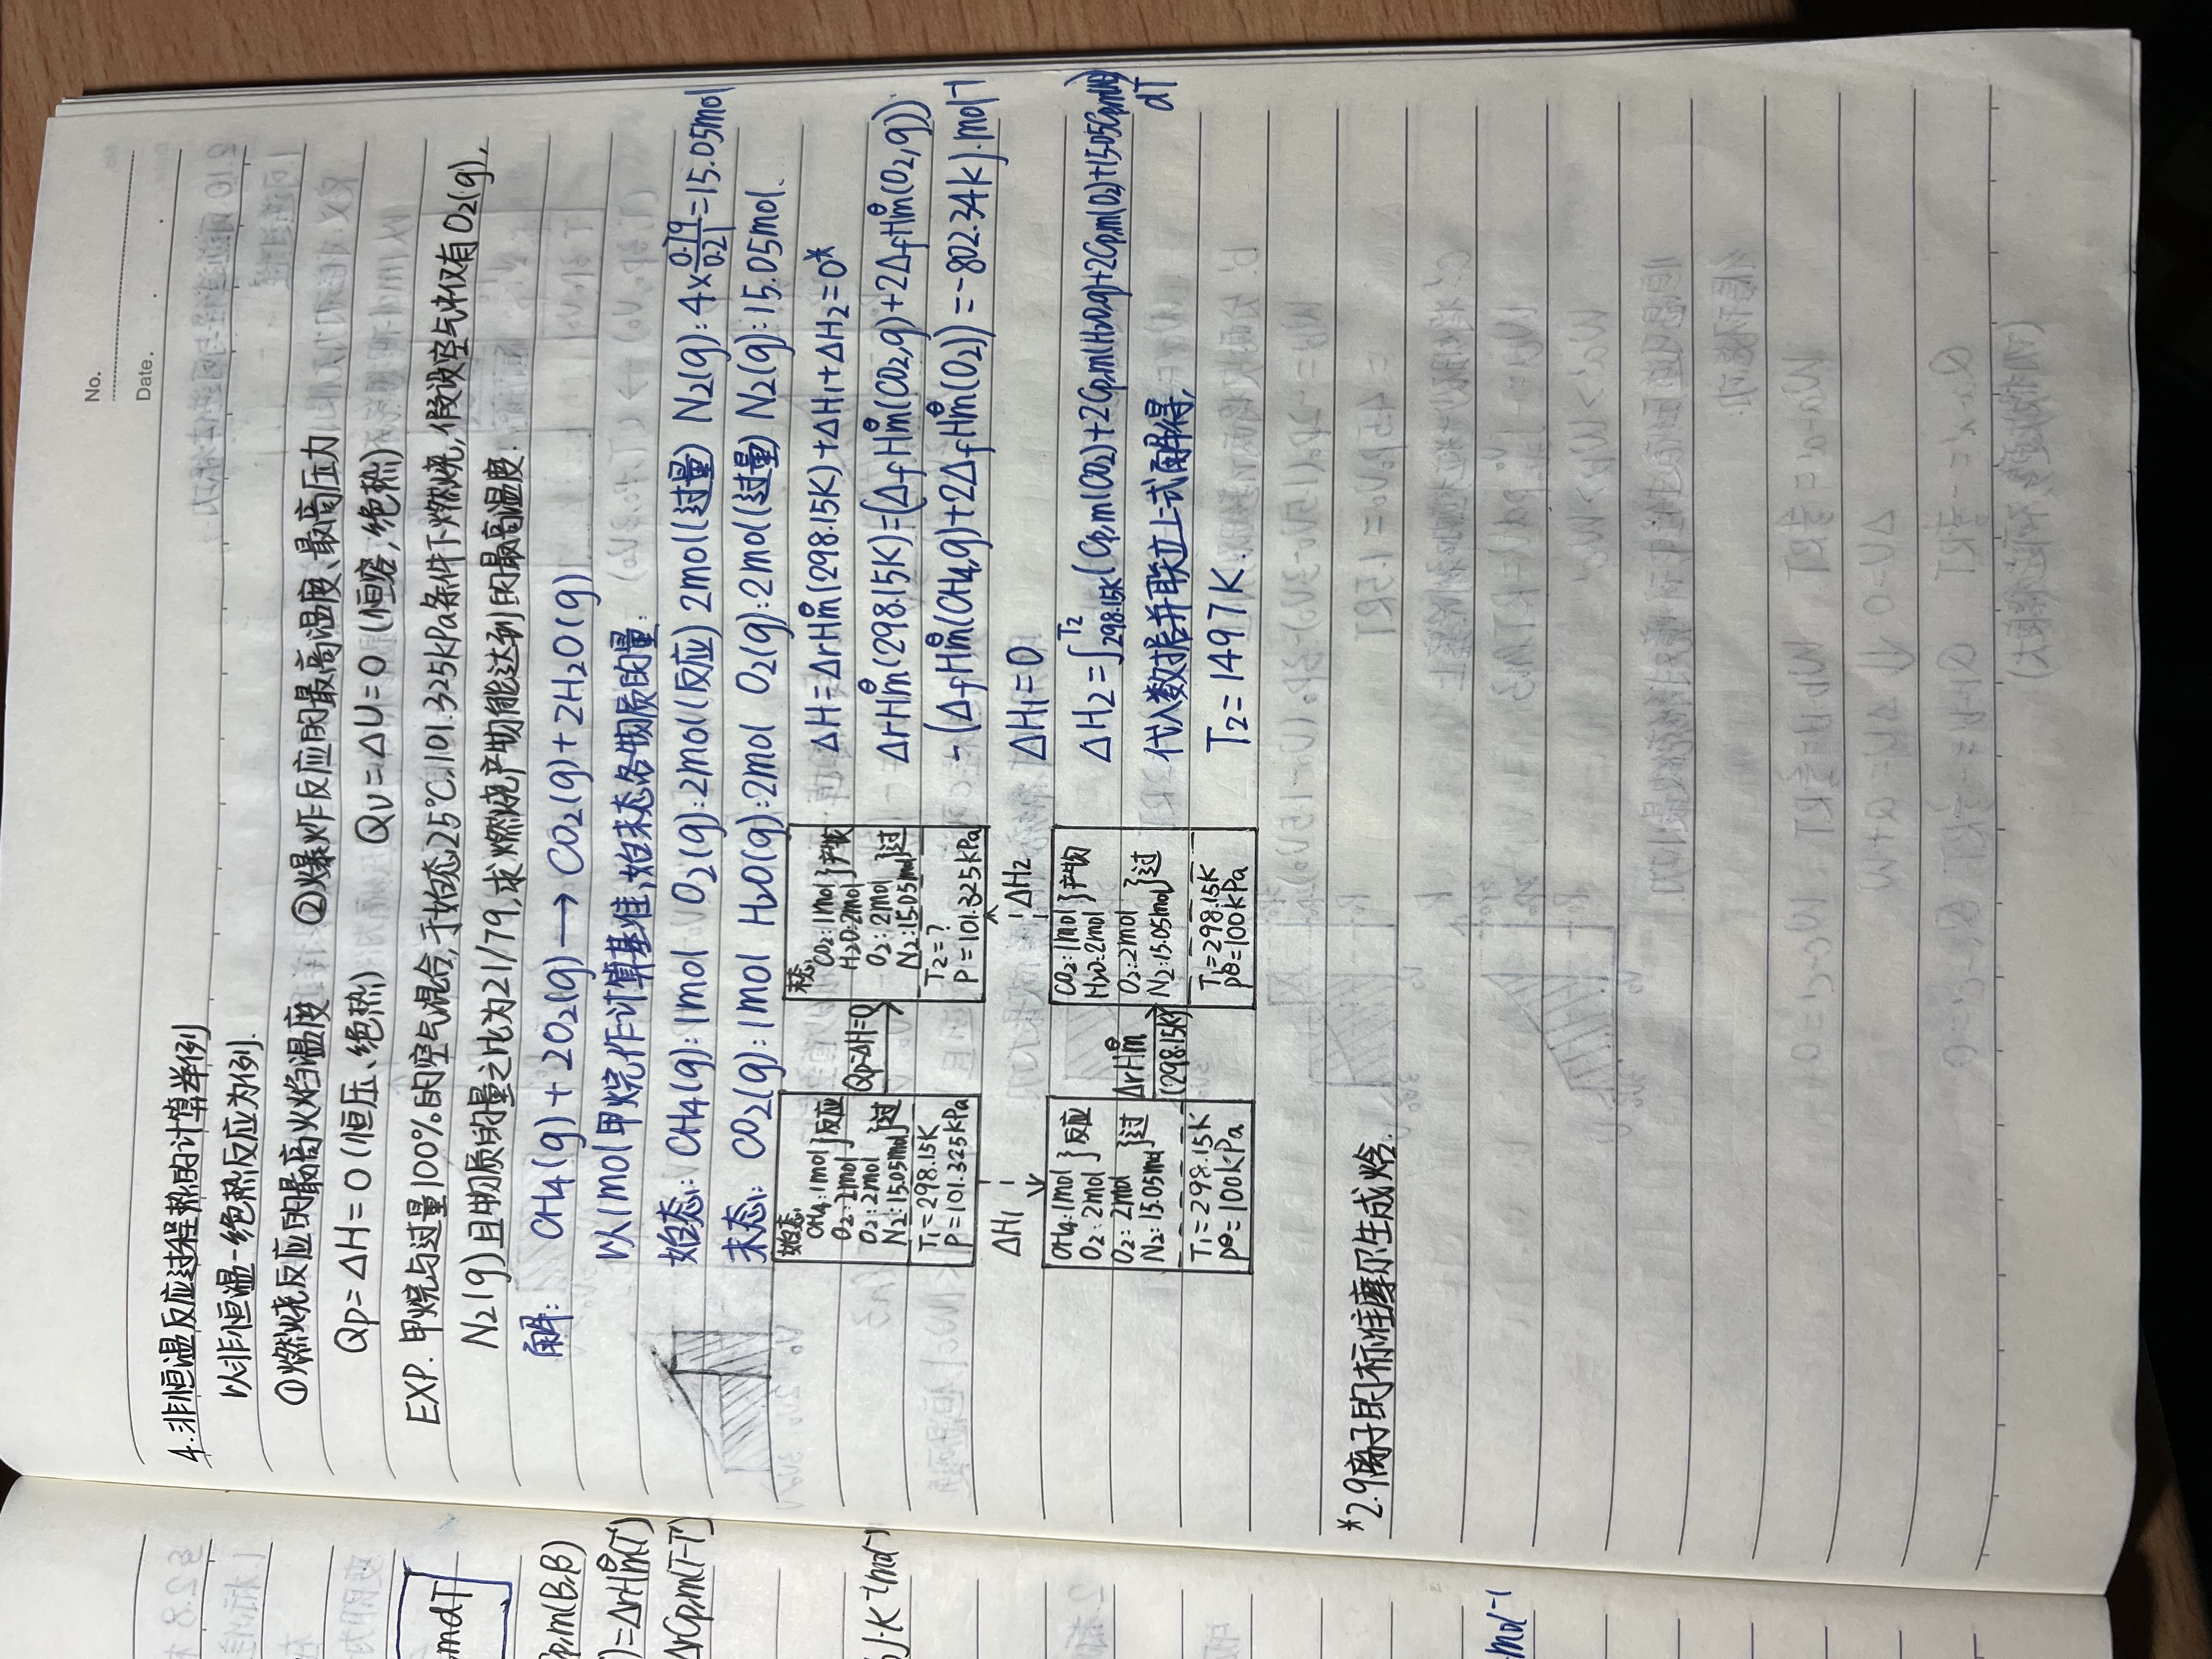 No.
Date.
4.非恒温反应过程热的计算举例
以非恒温-绝热反应为例.
①燃烧反应的最高火焰温度 ②爆炸反应的最高温度、最高压力
Qp=ΔH=0(恒压、绝热) Qv=ΔU=0(恒容,绝热)
EXP. 甲烷与过量100%的空气混合,于始态25°C,101.325kPa条件下燃烧,假设空气中仅有O₂(g),
N₂(g)且物质的量之比为21/79,求燃烧产物能达到的最高温度.
解: CH₄(g)+2O₂(g)→CO₂(g)+2H₂O(g)
以1mol甲烷作计算基准,始末态各物质的量:
始态: CH₄(g):1mol O₂(g):2mol(反应) 2mol(过量) N₂(g):4×0.79/0.21=15.05mol
末态: CO₂(g):1mol H₂O(g):2mol O₂(g):2mol(过量) N₂(g):15.05mol.
始态
CH₄:1mol}反应
O₂:2mol
O₂:2mol}过
N₂:15.05mol
T₁=298.15K
P=101.325kPa
Qp=ΔH=0
末态
CO₂:1mol}产物
H₂O:2mol
O₂:2mol}过
N₂:15.05mol
T₂=?
P=101.325kPa
ΔH₁
ΔH₂
CH₄:1mol}反应
O₂:2mol
O₂:2mol}过
N₂:15.05mol
T₁=298.15K
P^θ=100kPa
ΔrHm^θ
(298.15K)
CO₂:1mol}产物
H₂O:2mol
O₂:2mol}过
N₂:15.05mol
T₁=298.15K
P^θ=100kPa
ΔH=ΔrHm^θ(298.15K)+ΔH₁+ΔH₂=0*
ΔrHm^θ(298.15K)=(ΔfHm^θ(CO₂,g)+2ΔfHm^θ(O₂,g))
-(ΔfHm^θ(CH₄,g)+2ΔfHm^θ(O₂))=-802.34kJ·mol⁻¹
ΔH₁=0
ΔH₂=∫_{298.15K}^{T₂}(Cp,m(CO₂)+2Cp,m(H₂O,g)+2Cp,m(O₂)+15.05Cp,m(N₂))
dT
代入数据并联立上式解得,
T₂=1497K.
*2.9离子的标准摩尔生成焓.
mdT
Cp,m(B,β)
)=ΔrHm^θ(T)
ΔrCp,m(T-T')
J·K⁻¹mol⁻¹
mol⁻¹